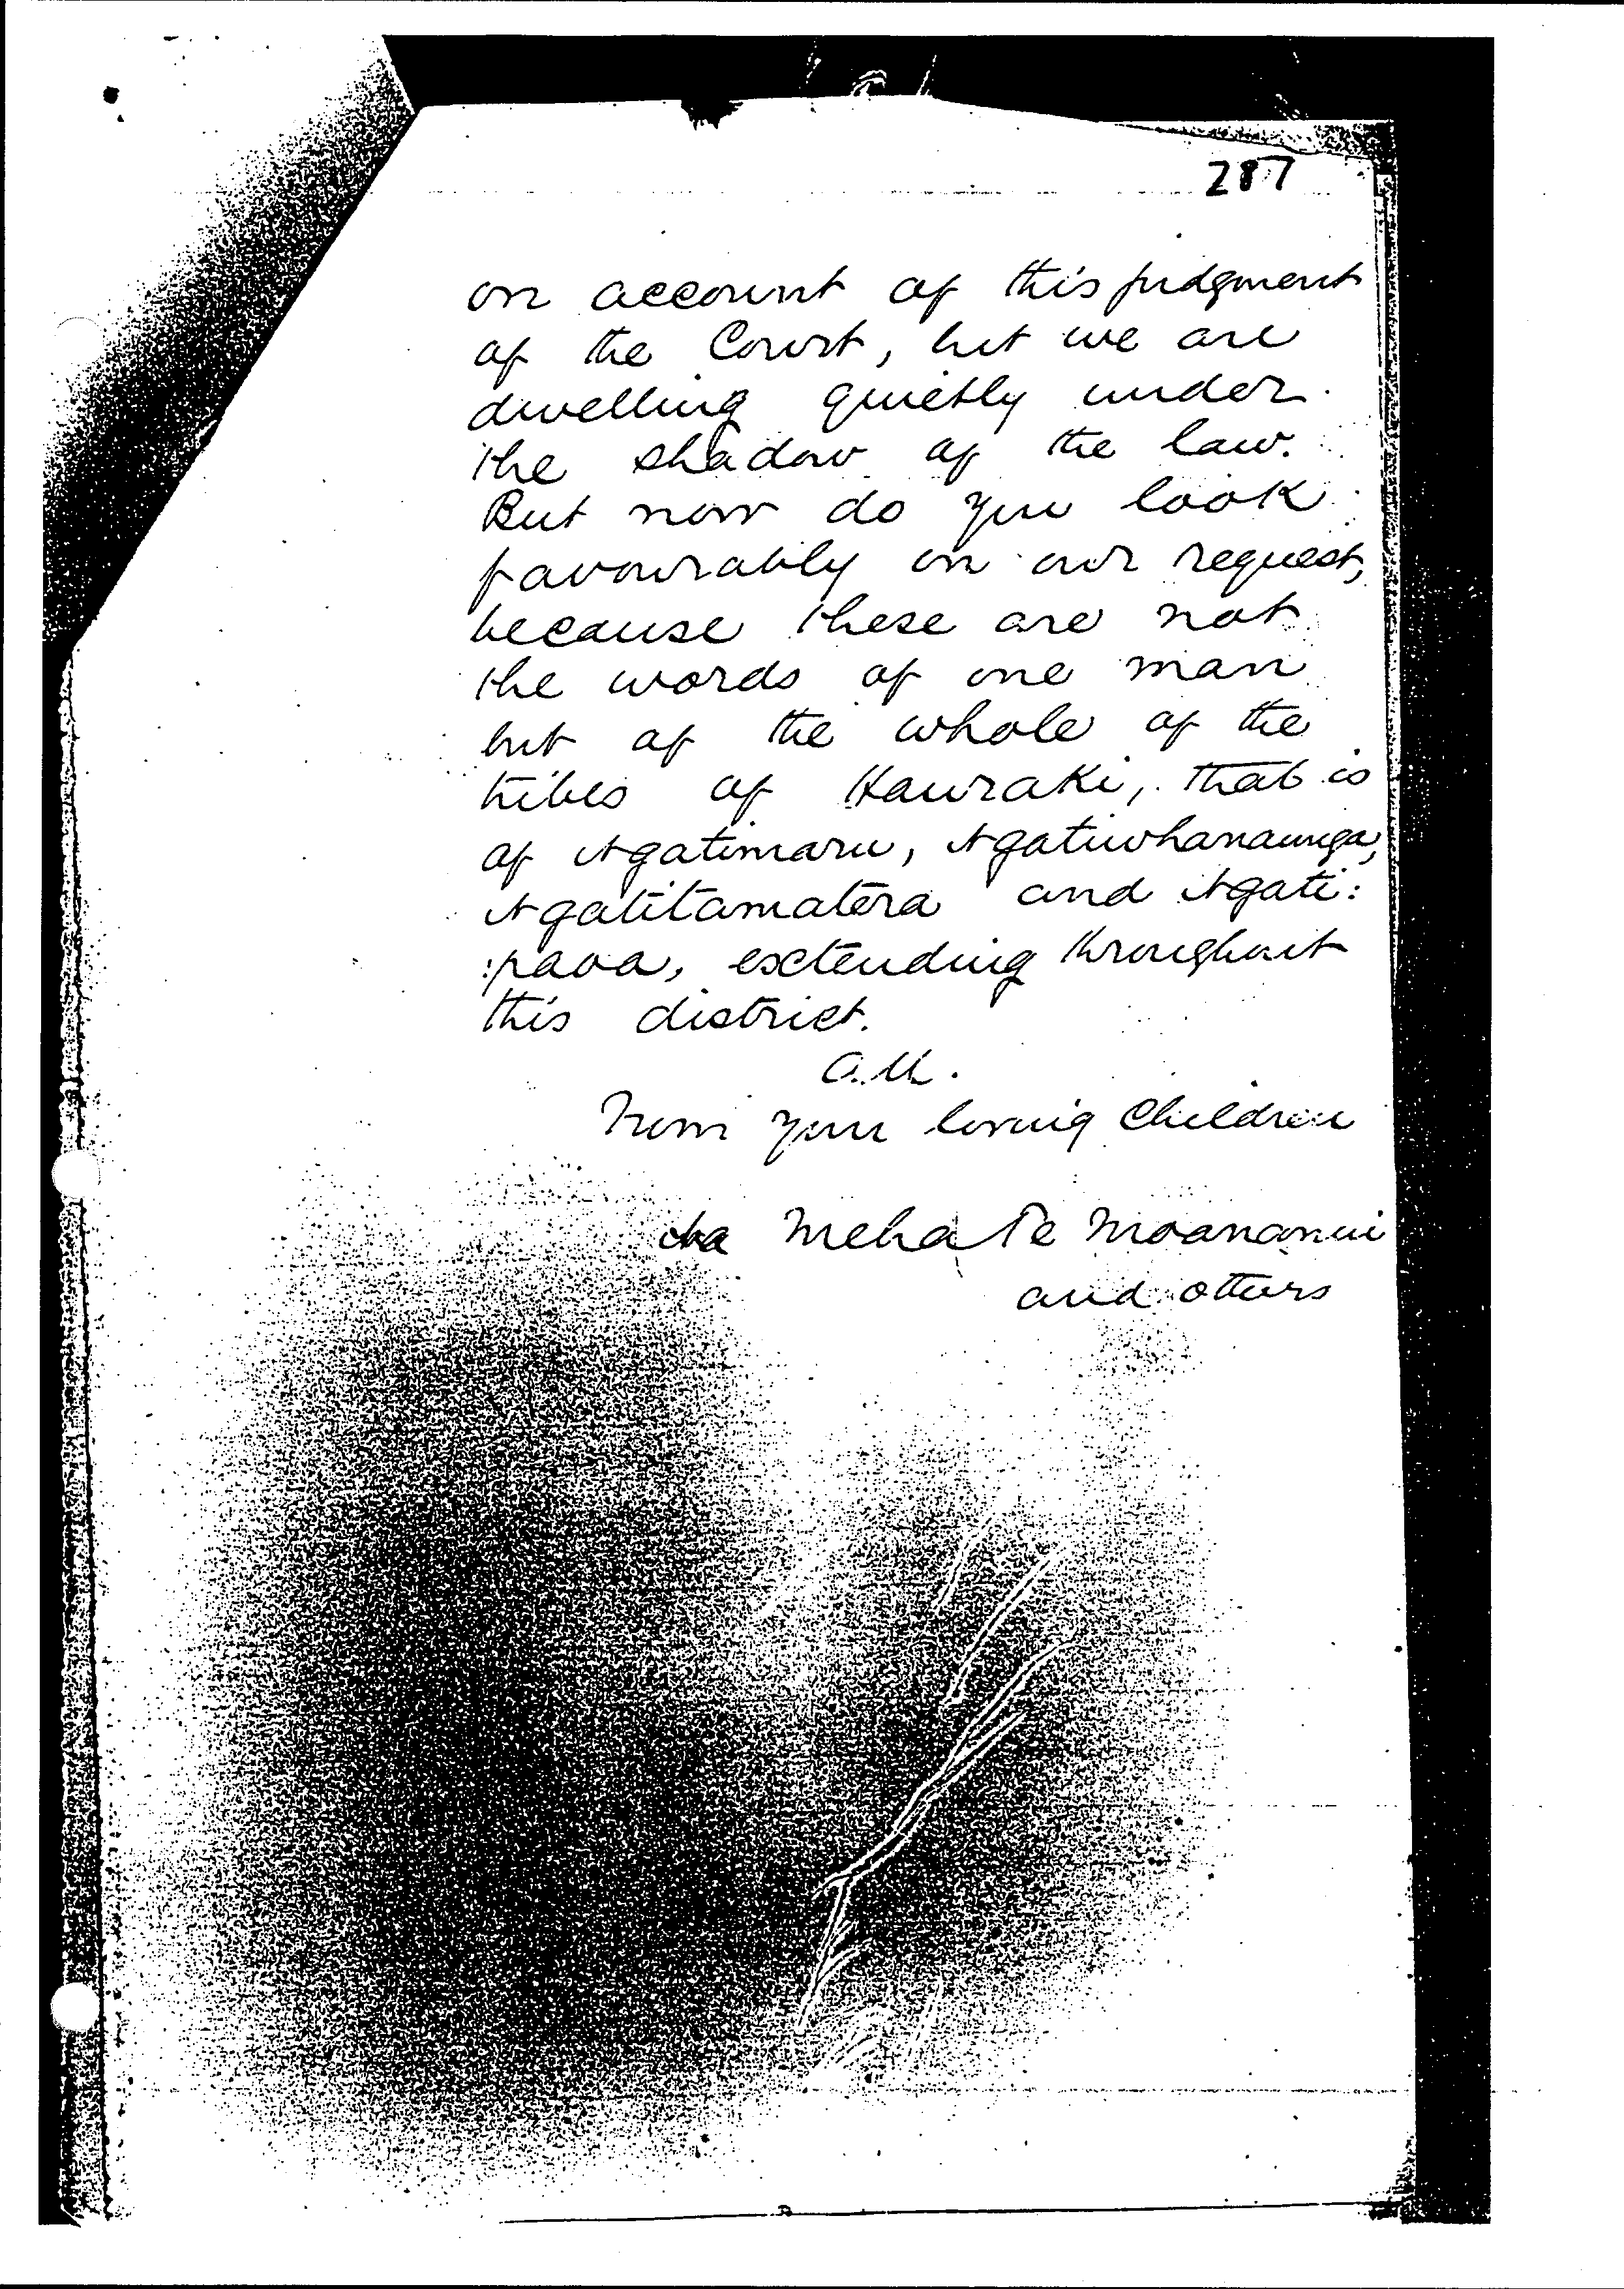 287
on account of this judgment
of the Court, but we are
dwelling quietly under
the shadow of the law.
But now do you look
favourably on our request,
because these are not
the words of one man
but of the whole of the
tribes of Hauraki, that is
of Ngatimaru, Ngatiwhanaunga,
Ngatitamatera and Ngati:
:paoa, extending throughout
this district.
From your loving Children
Na Meha Te Moananui
and others